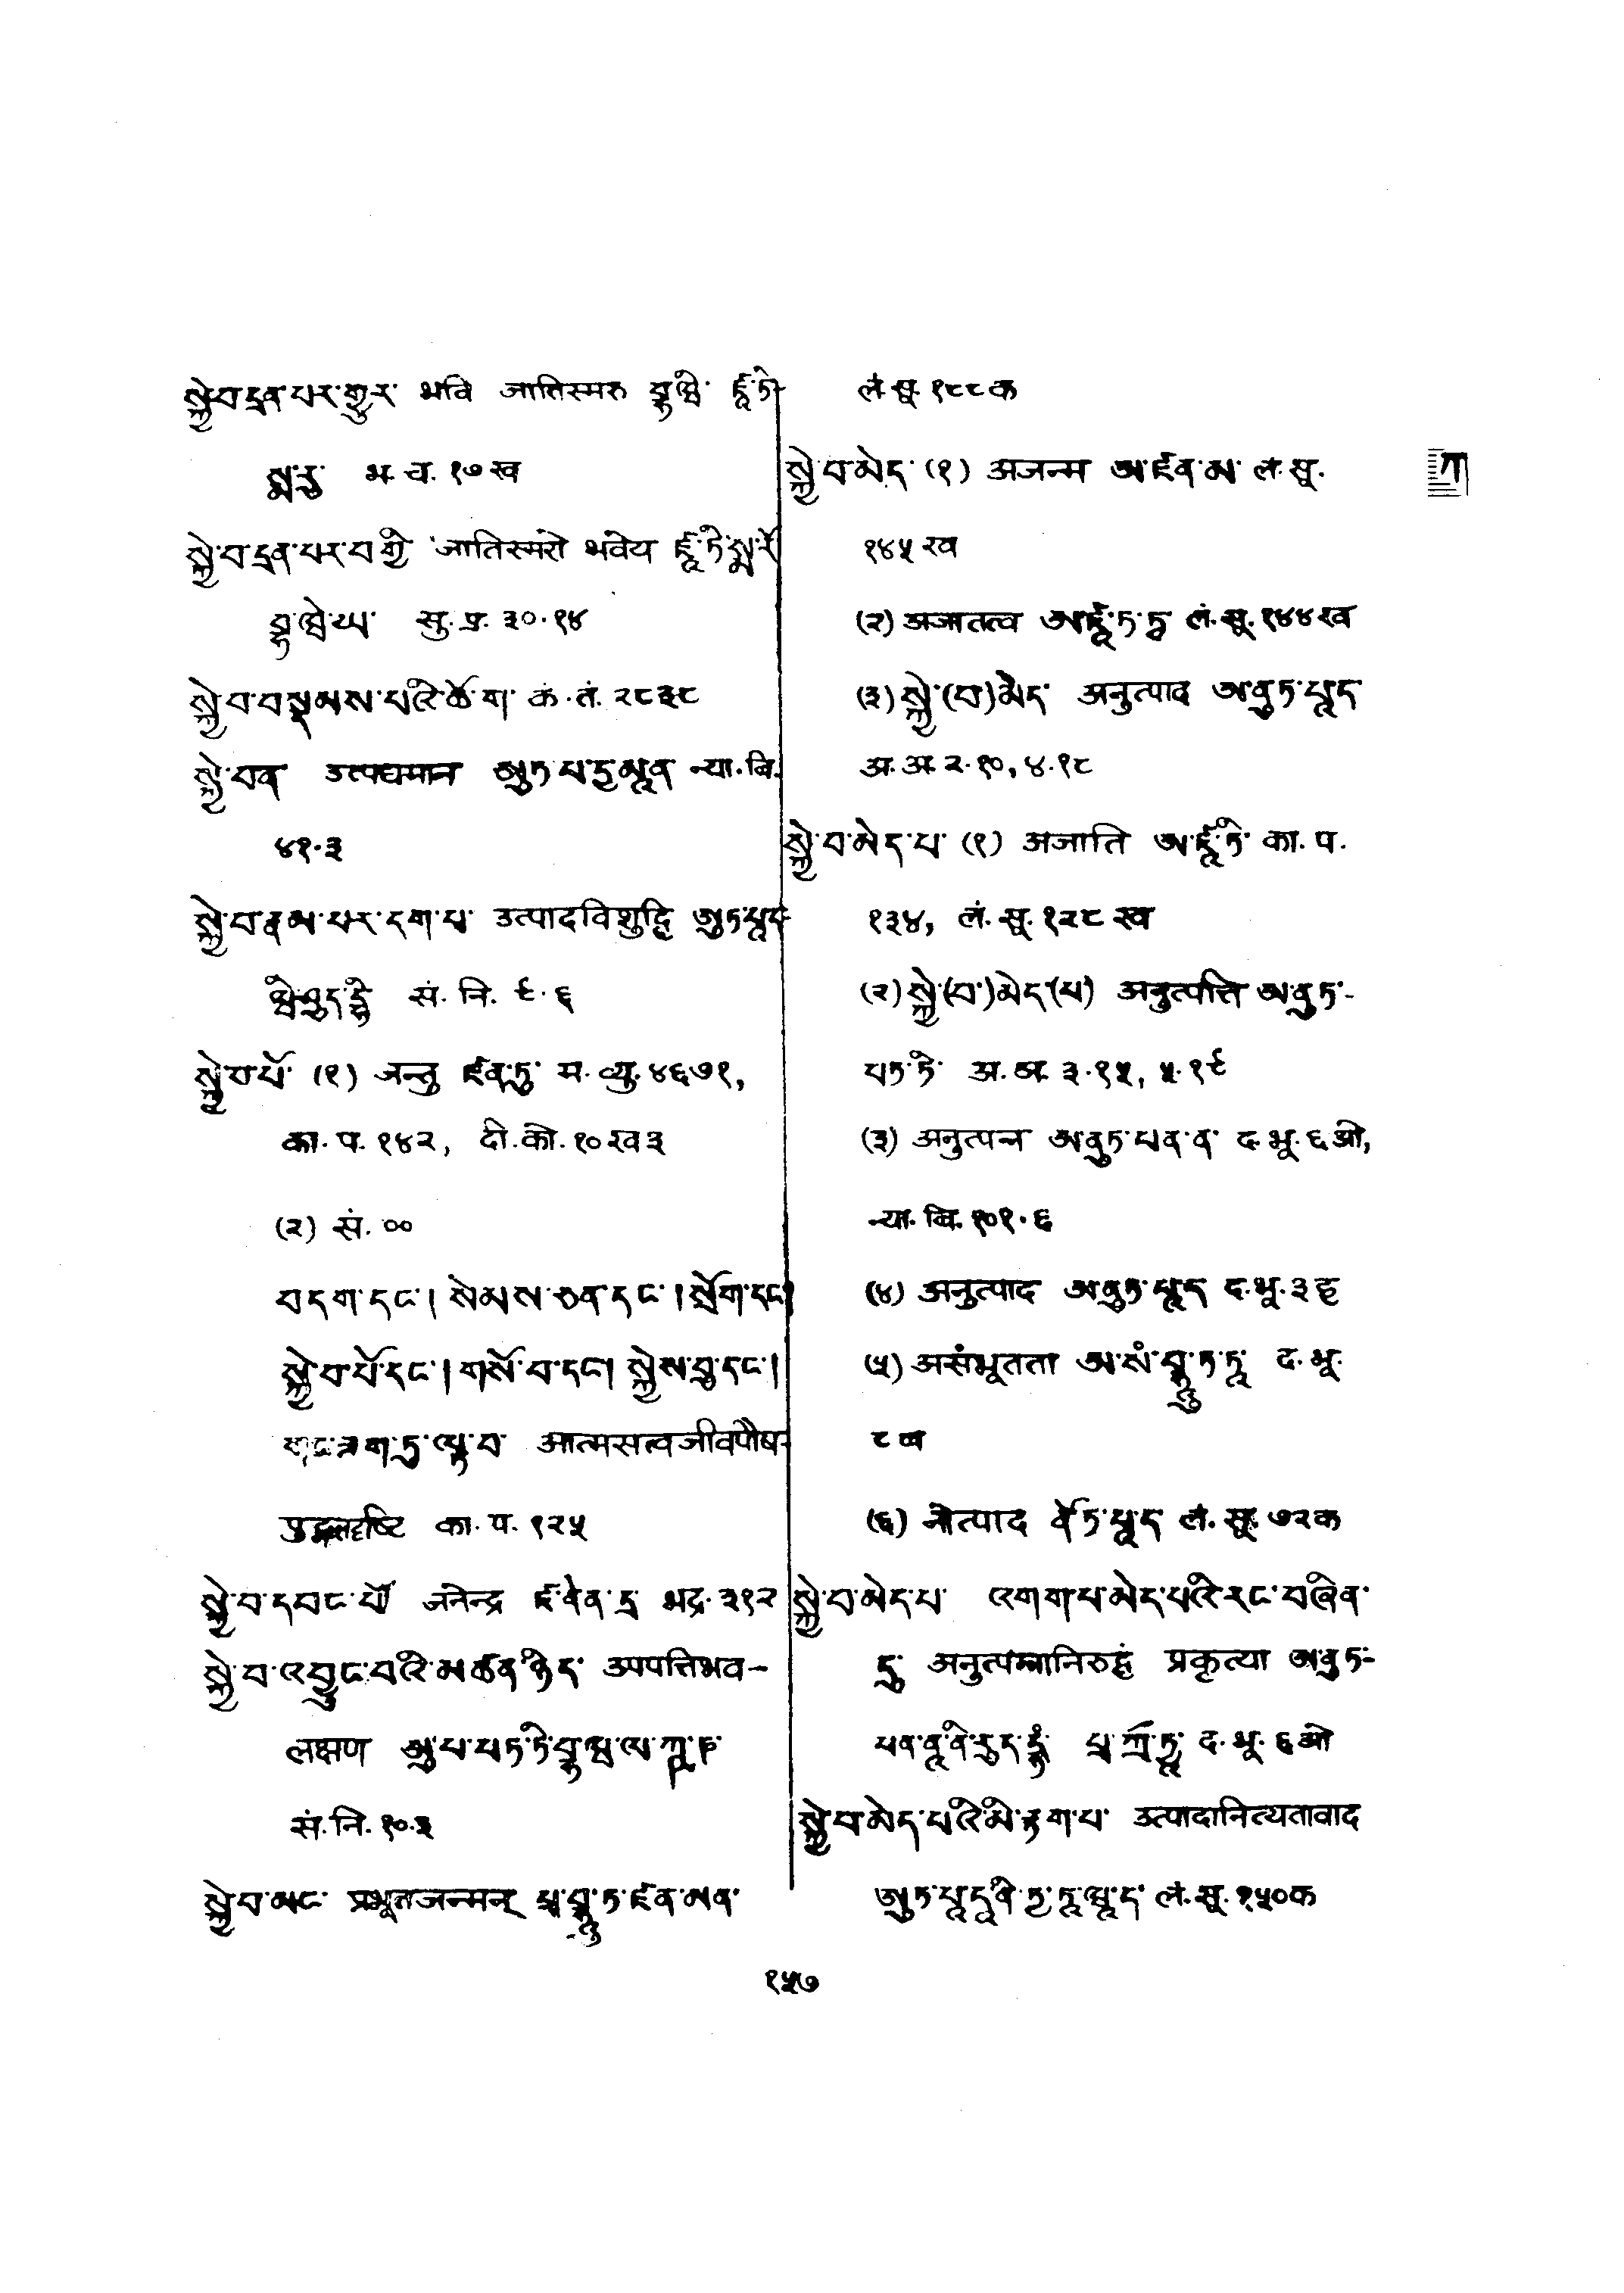 སྐྱེ་བ་དྲན་པར་གྱུར་ भवि जातिस्मरु བྷ་ཝི་ ཛཱ་ཏི-
སྨ་རུ་ भ. च. १७ ख
སྐྱེ་བ་དྲན་པར་བགྱི་ जातिस्मरो भवेय ཛཱ་ཏི་སྨ་རོ
བྷ་ཝེ་ཡ་ सु. प्र. ३०.१४
སྐྱེ་བ་བསྡམས་པའི་ཚོ་ག་ क. तं. २८३८
སྐྱེ་བན उत्पद्यमान ཨུཏ་པ་དྱ་མཱན न्या. बि.
४१.३
སྐྱེ་བ་རྣམ་པར་དག་པ་ उत्पादविशुद्धि ཨུཏ་པཱད-
ཝི་ཤུད་དྷི སं. नि. ९.६
སྐྱེ་བ་པོ་ (१) जन्तु ཛན་ཏུ་ म. व्यु. ४६७१,
का. प. १४२, दो. को. १० ख ३
(२) सं. ००
བདག་དང་། སེམས་ཅན་དང་། སྲོག་དང་།
སྐྱེ་བ་པོ་དང་། གསོ་བ་དང་། སྐྱེས་བུ་དང་།
གང་ཟག་ཏུ་ལྟ་བ་ आत्मसत्वजीवपोष-
पुद्गलदृष्टि का. प. १२५
སྐྱེ་བ་དབང་པོ जनेन्द्र ཛ་ནེན་དྲ भद्र. ३१२
སྐྱེ་བ་འབྱུང་བའི་མཚན་ཉིད་ उपपत्तिभव-
लक्षण ཨུ་པ་པཏ་ཏི་བྷ་ཝ་ལ་ཀྵ་ཎ་
सं. नि. १०.३
སྐྱེ་བ་མང་ प्रभूतजन्मन् པྲ་བྷཱུ་ཏ་ཛན་མན་
लं. सू. १८८ क
སྐྱེ་བ་མེད་ (१) अजन्म ཨ་ཛན་མ་ लं. सू.
१४५ ख
(२) अजातत्व ཨ་ཛཱ་ཏ་ཏྭ लं. सू. १४४ ख
(३) སྐྱེ་(བ་)མེད་ अनुत्पाद ཨ་ནུཏ་པཱད
अ. अ. २.१०, ४.१८
སྐྱེ་བ་མེད་པ་ (१) अजाति ཨ་ཛཱ་ཏི་ का. प.
१३४, लं. सू. १२८ ख
(२) སྐྱེ་(བ་)མེད་(པ) अनुत्पत्ति ཨ་ནུཏ་-
པཏ་ཏི་ अ. अ. ३.१५, ५.१९
(३) अनुत्पन्न ཨ་ནུཏ་པན་ན་ द. भू. ६ ओ,
न्या. बि. १०१.६
(४) अनुत्पाद ཨ་ནུཏ་པཱད द. भू. ३
(५) असंभूतता ཨ་སཾ་བྷཱུ་ཏ་ཏཱ द. भू.
८
(६) नोत्पाद ནོཏ་པཱད लं. सू. ७२ क
སྐྱེ་བ་མེད་པ་ འགག་པ་མེད་པའི་རང་བཞིན་
དུ་ अनुत्पन्नानिरुद्धं प्रकृत्या ཨ་ནུཏ་-
པན་ནཱ་ནི་རུད་དྷཾ པྲ་ཀྲྀ་ཏྱཱ द. भू. ६ ओ
སྐྱེ་བ་མེད་པའི་མི་རྟག་པ་ उत्पादानित्यतावाद
ཨུཏ་པཱ་དཱ་ནི་ཏྱ་ཏཱ་ཝཱ་ད་ लं. सू. १५० क
ཀ
१५७